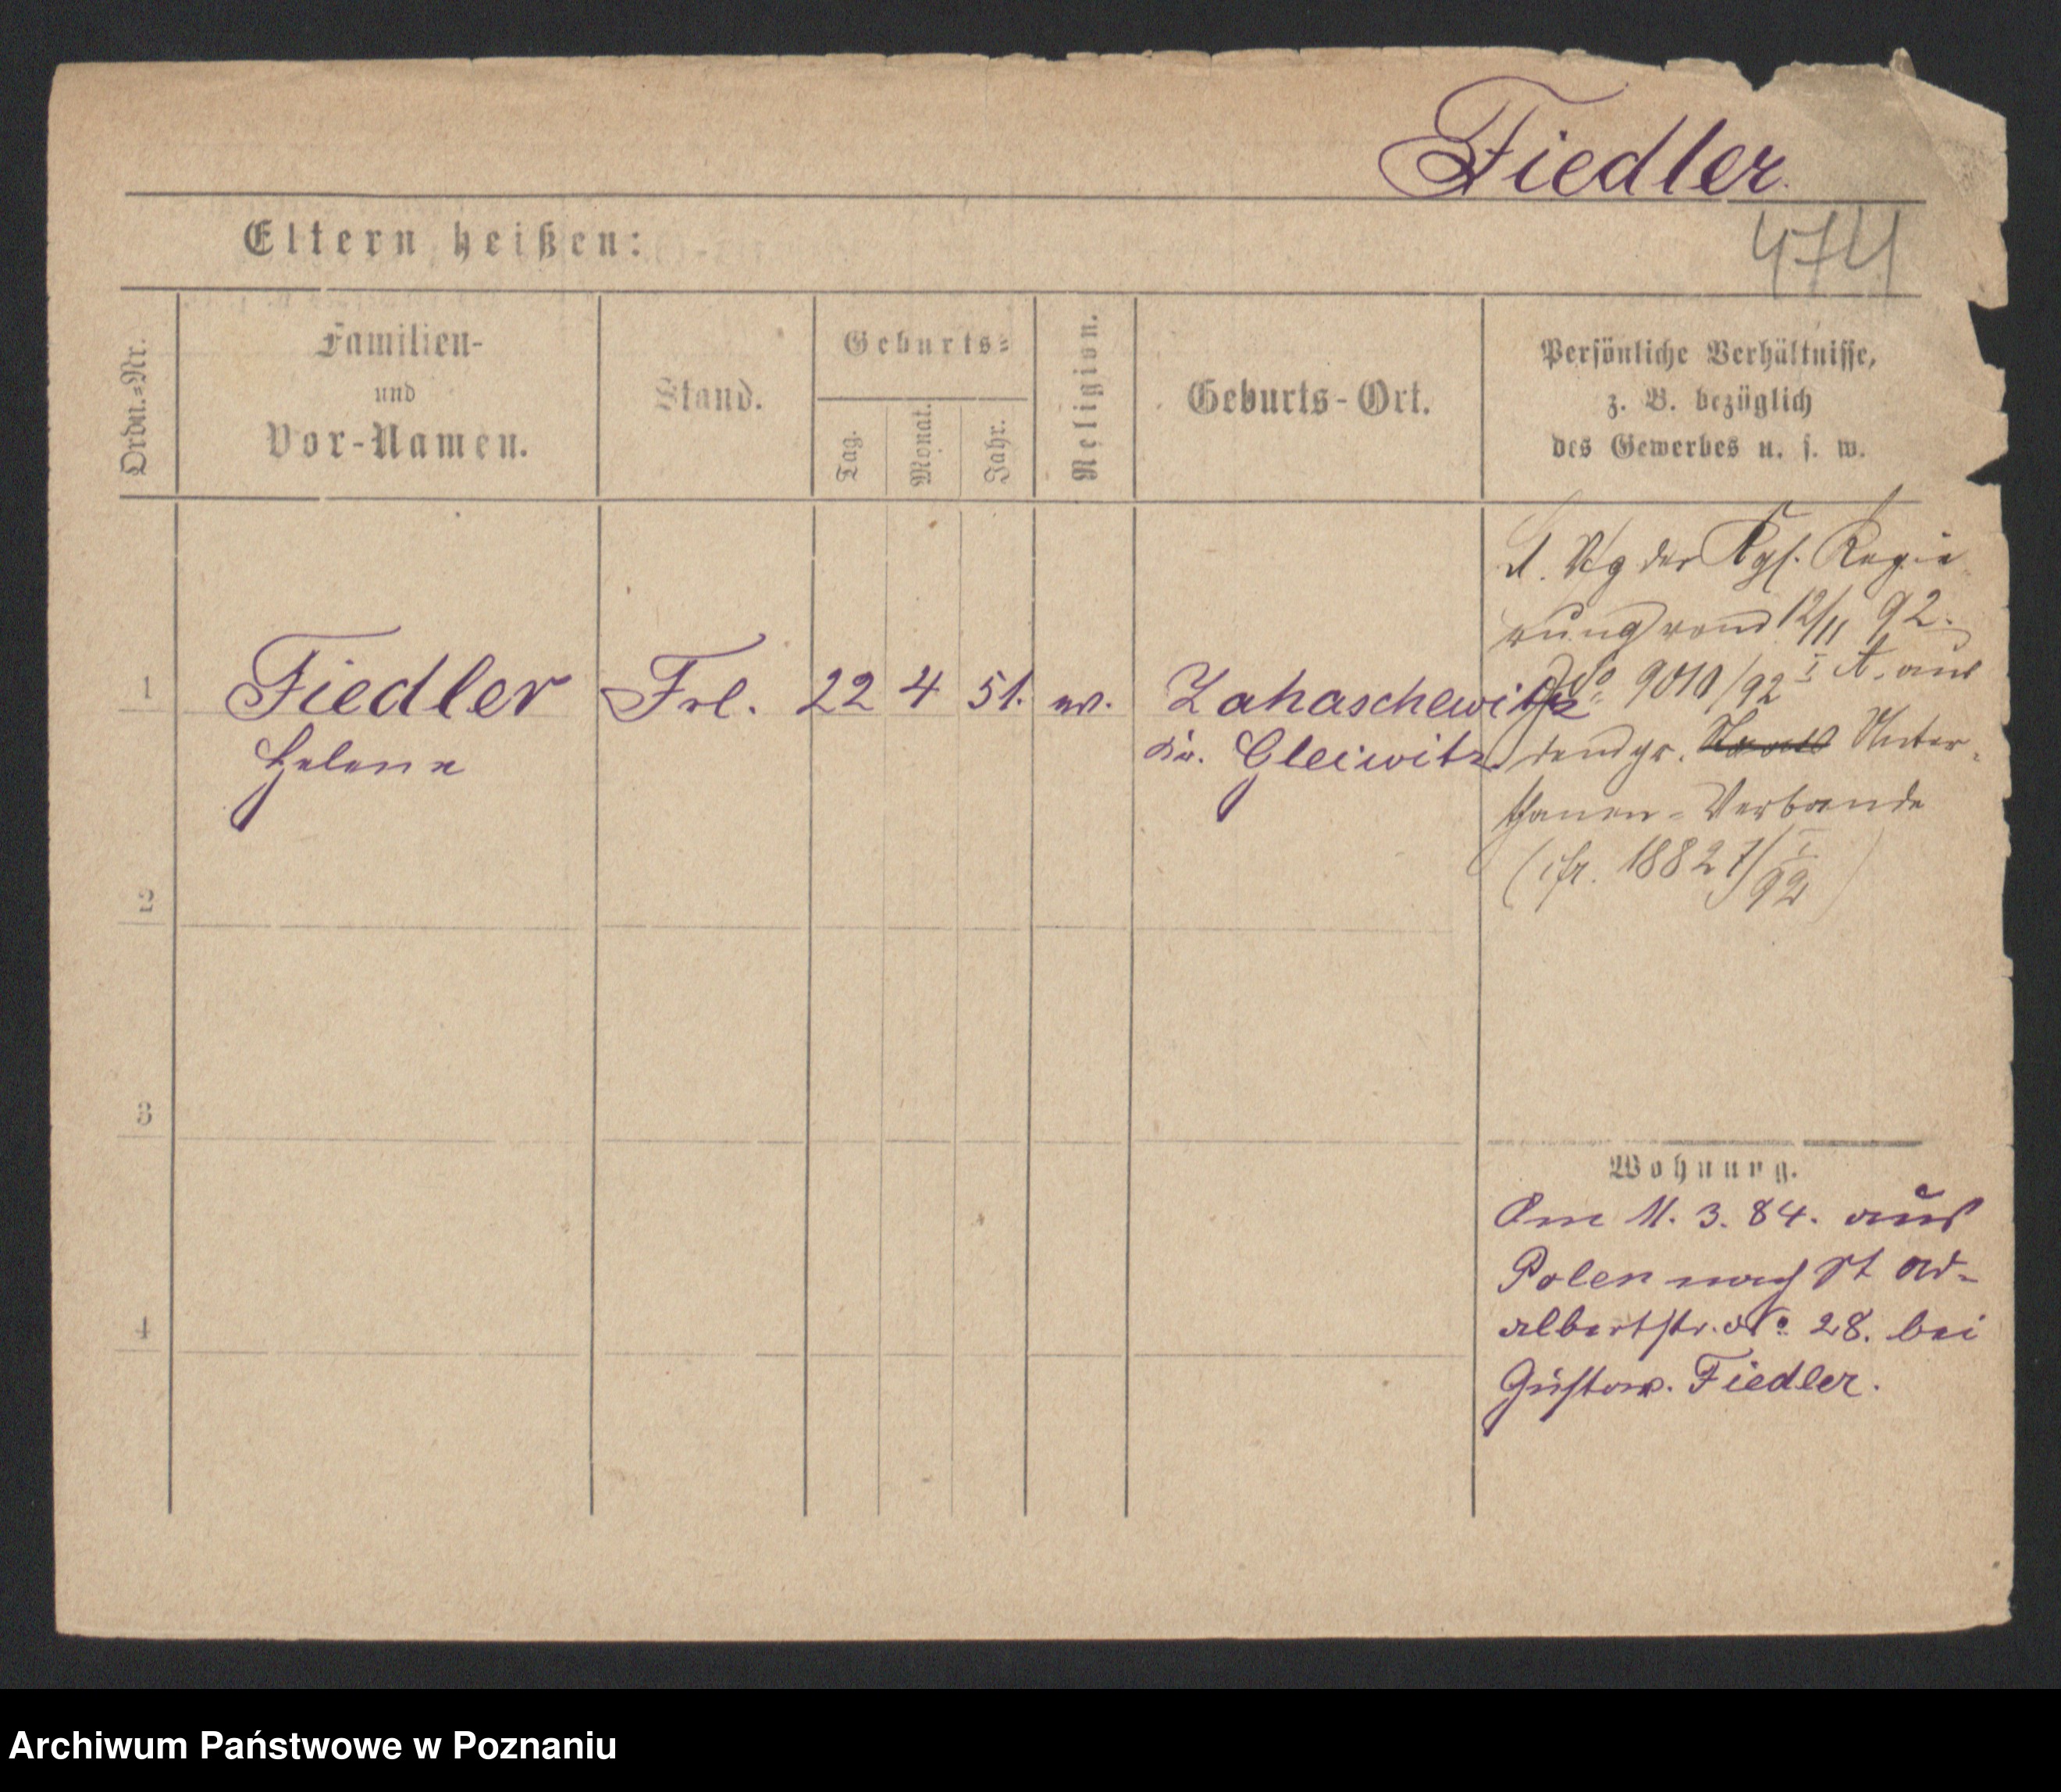 Fiedler.
474
Eltern heißen:
Ordn.=Nr.
Familien-
und
Vor-Namen.
Stand.
Geburts=
Tag.
Monat.
Jahr.
Religion.
Geburts-Ort.
Persönliche Verhältnisse,
z. B. bezüglich
des Gewerbes u. s. w.
1
Fiedler Frl. 22 4 51. ev. Zahaschewitz
Helene
Kr. Gleiwitz
der Kgl. Regie
rung vom 12/11 92.
No 9010/92 I A. aus
Unter-
thanen=Verbande
(cfr. 18827/I 92)
2
3
4
Wohnung.
Am 11. 3. 84. aus
Polen nach St Ad-
albertstr. No 28. bei
Gustav. Fiedler.
Archiwum Państwowe w Poznaniu